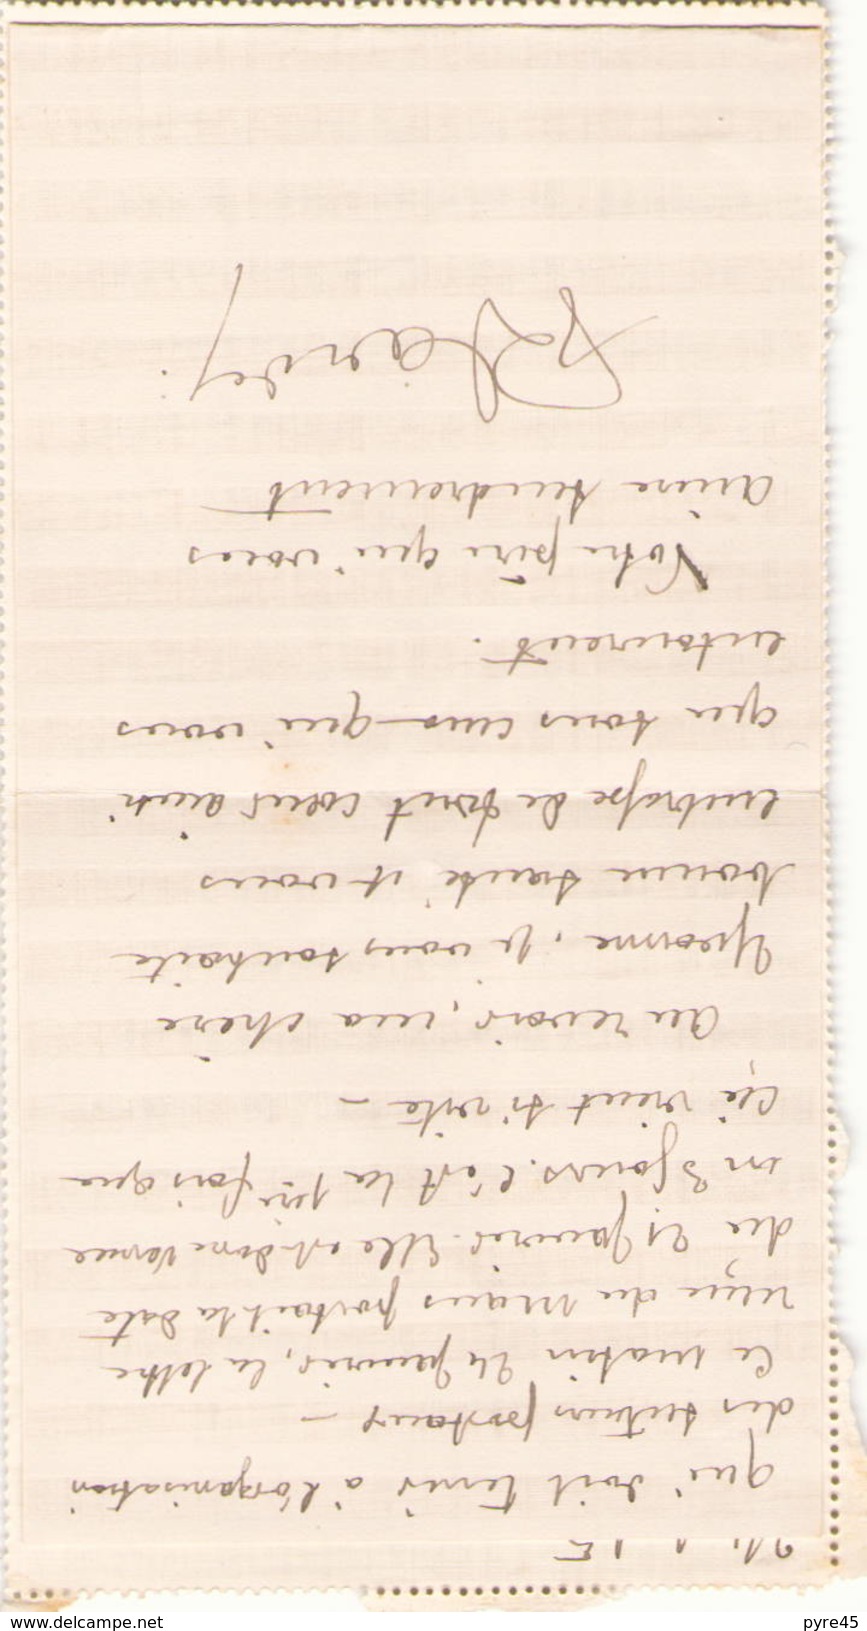 24.1.15
qui doit tenir à l'organisation
des secteurs postaux —
Ce matin 24 janvier, la lettre
reçue du Mans portait la date
du 21 janvier. Elle est donc venue
en 3 jours. C'est la 1ère fois que
çà vient si vite —
Au revoir, ma chère
Yvonne, je vous souhaite
bonne santé et vous
embrasse de tout cœur ainsi
que tous ceux qui vous
entourent.
Votre père qui vous
aime tendrement
www.delcampe.net
pyre45